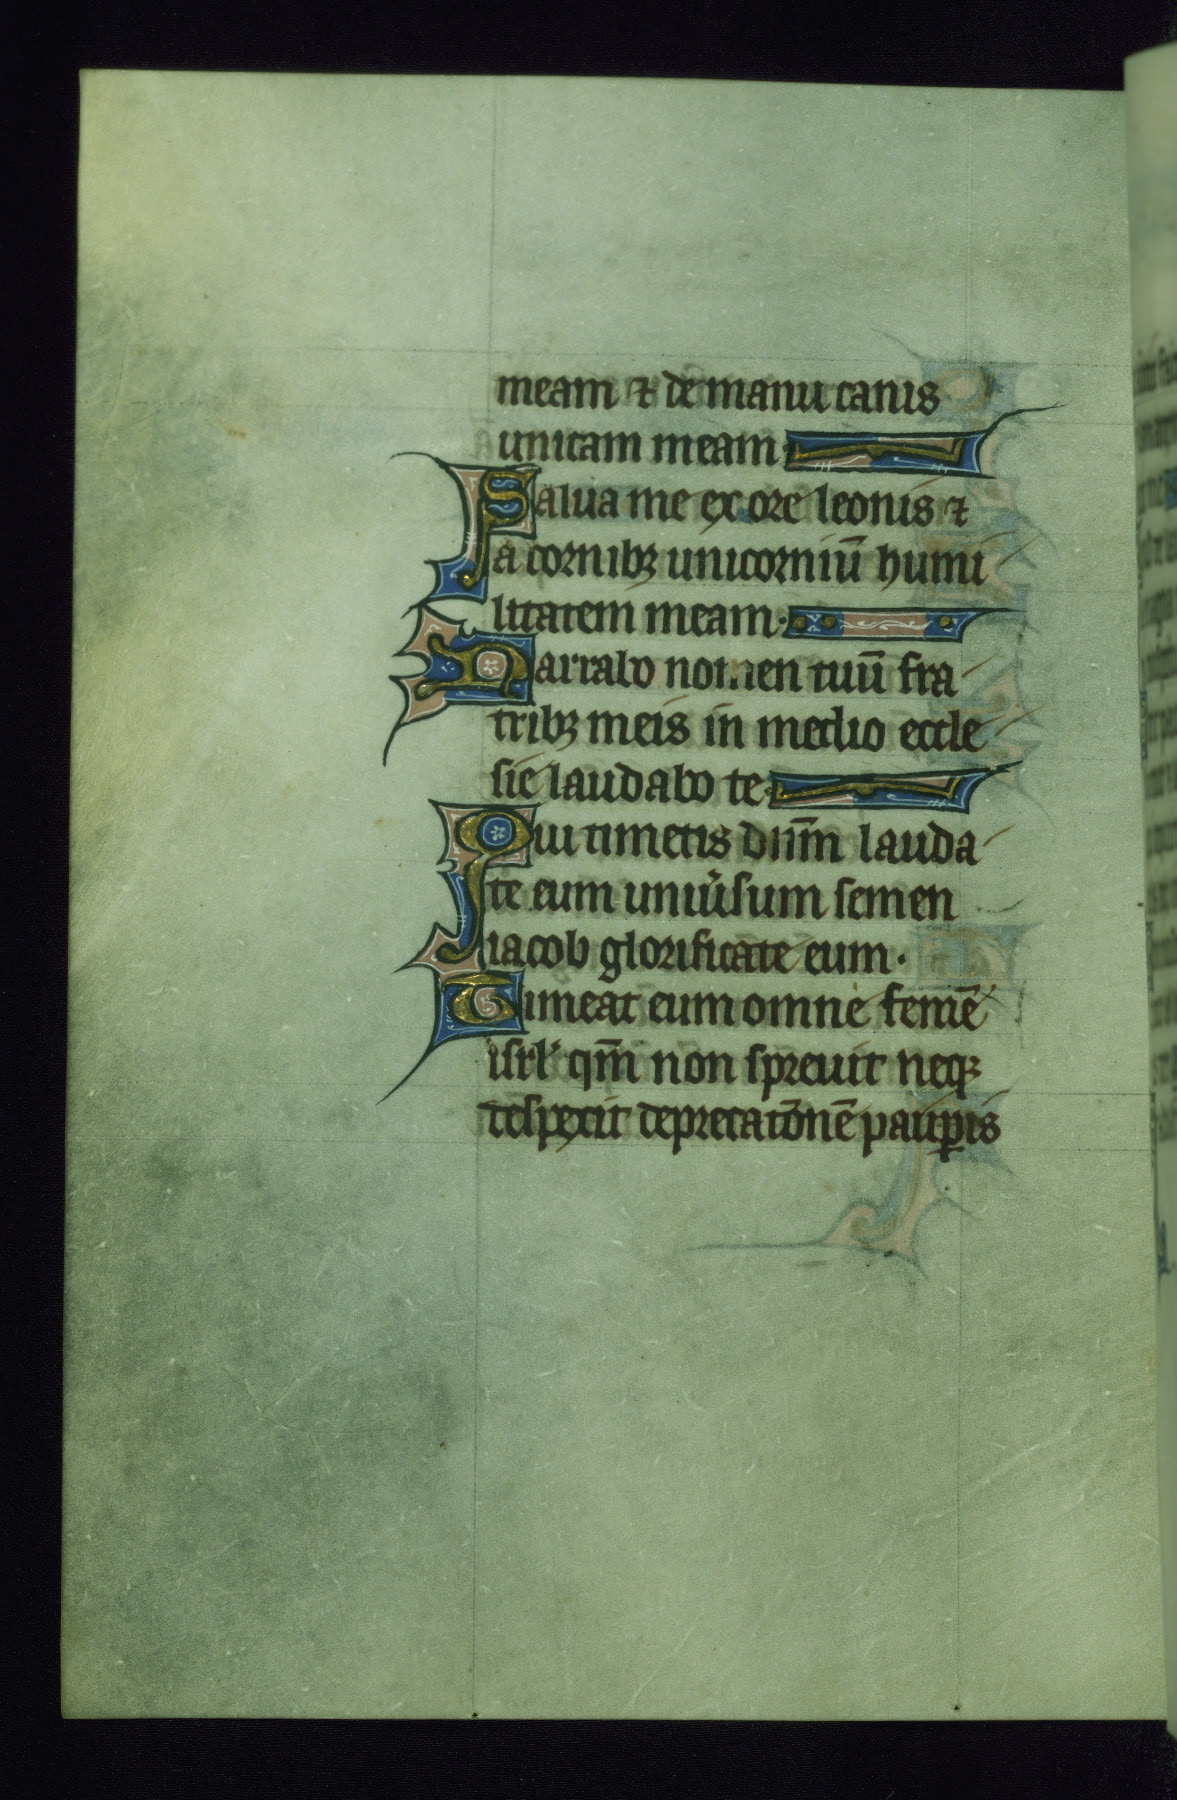 meam ⁊ de manu canis
unicam meam·
Salua me ex ore leonis ⁊
a cornibꝫ unicorniū humi
litatem meam·
Narrabo nomen tuū fra
tribꝫ meis in medio eccle
sie laudabo te·
Qui timetis dnm̄ lauda
te eum uniu͛sum semen
iacob glorificate eum·
Timeat eum omne semē
isrl᾽ qm̄ non spreuit neqꝫ
despexit deprecatōnē paup̲is